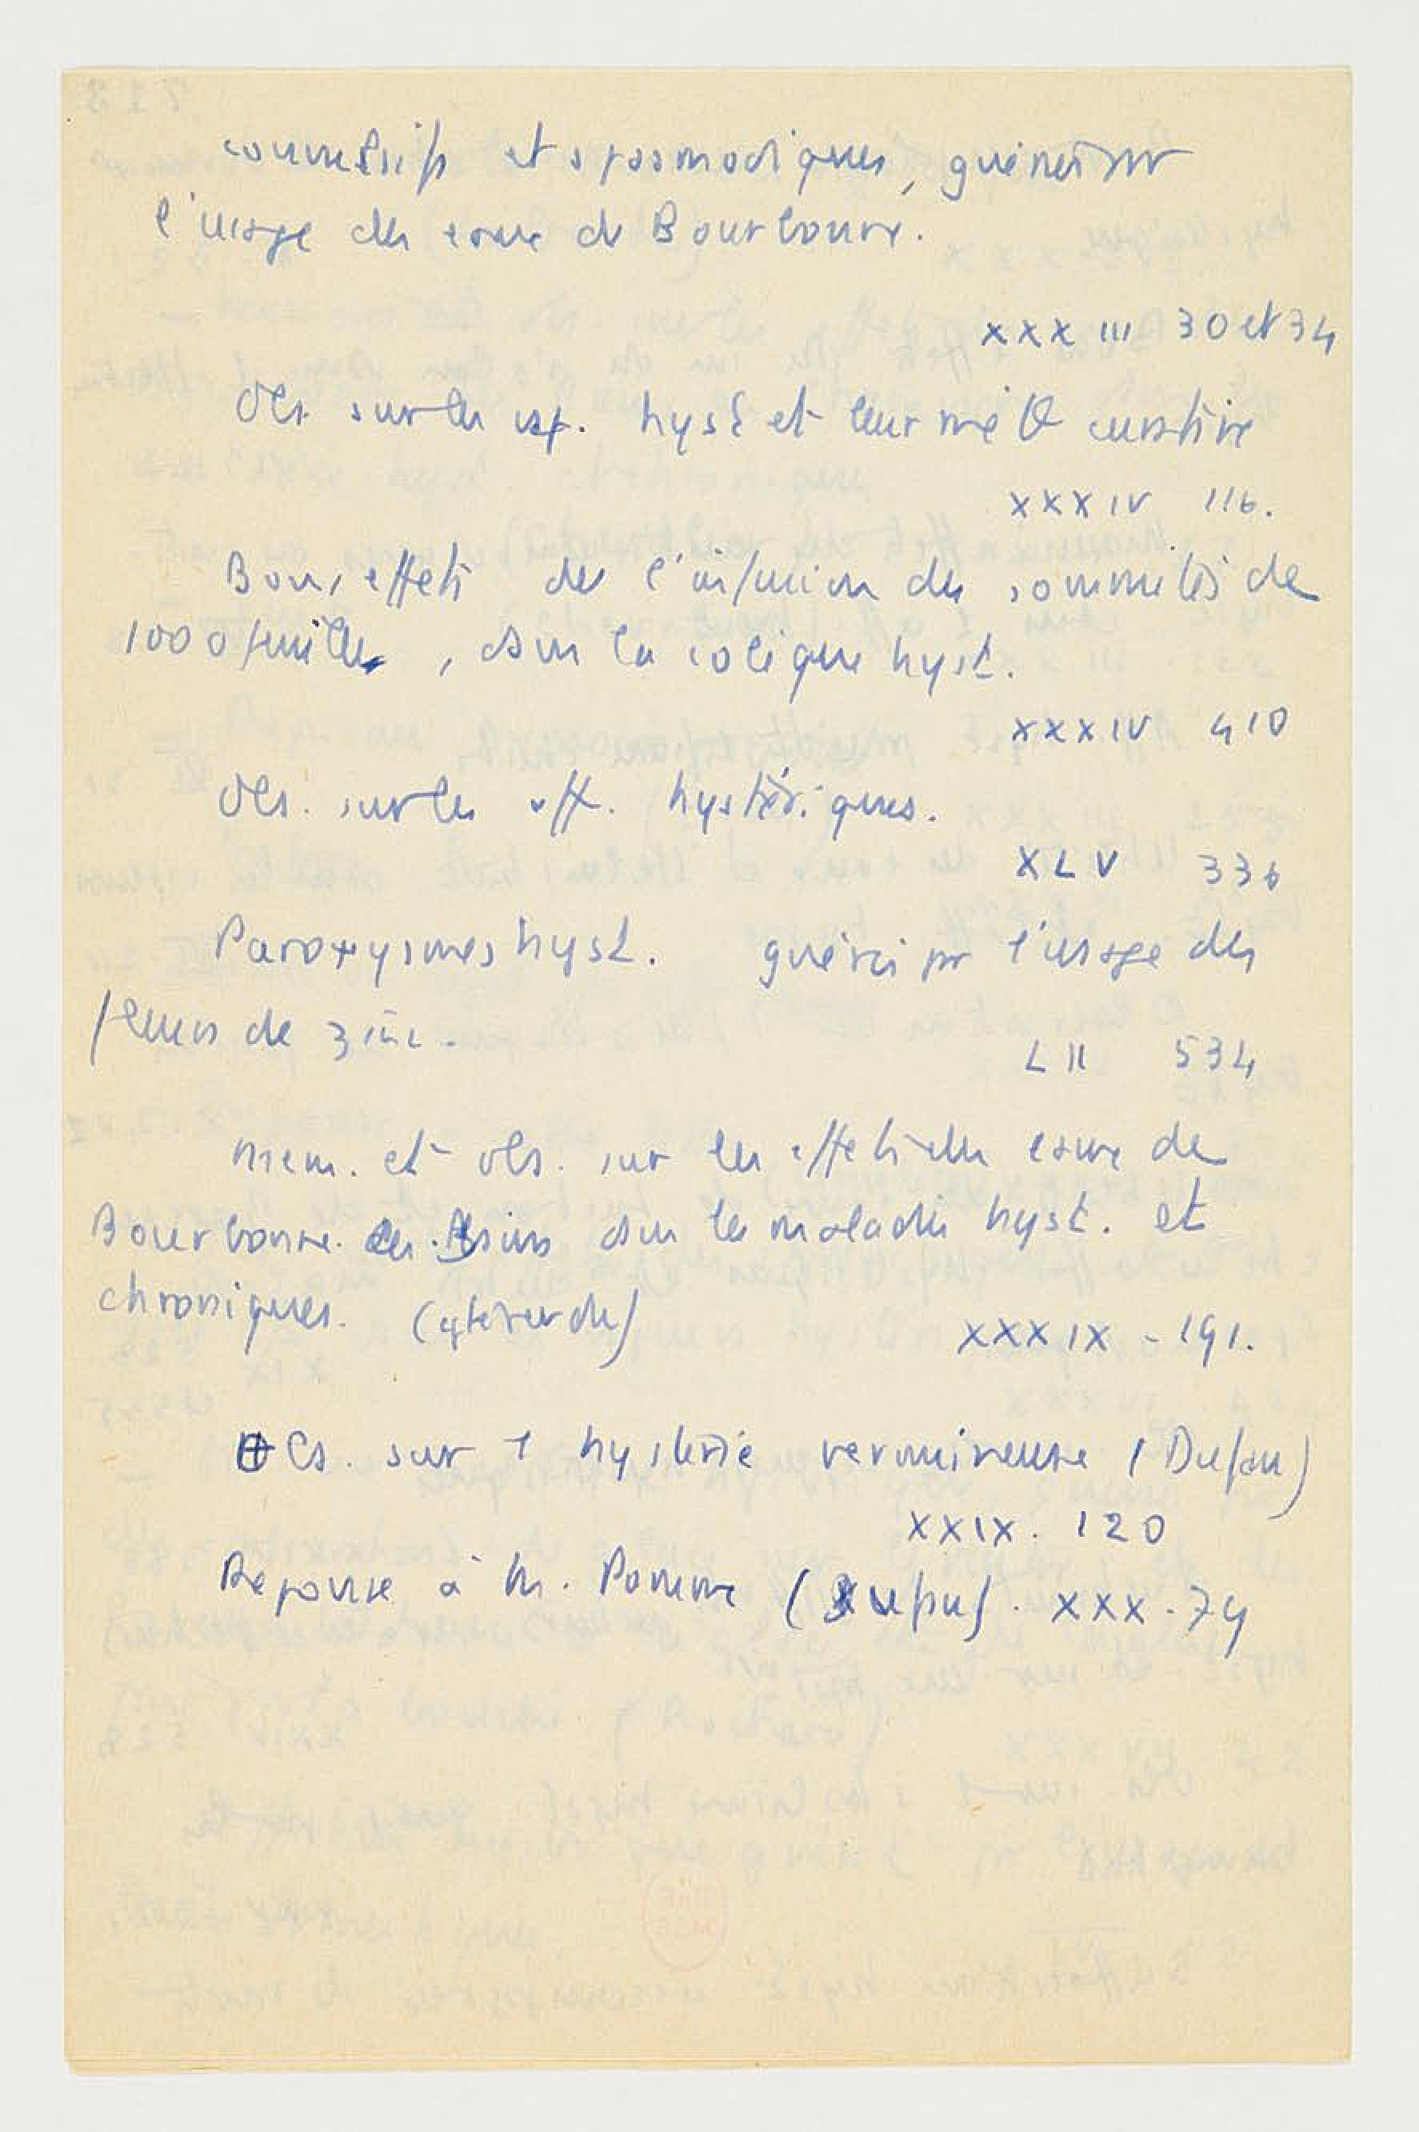 convulsifs et spasmodiques, guéries par
l'usage des eaux de Bourbonne.
XXXIII 30 et 34
Obs. sur les aff. hyst et leur curative
XXXIV 116.
Bons effets de l'infusion des sommités de
1000 feuilles, dans la colique hyst.
XXXIV 410
Obs. sur les aff. hystériques.
XLV 336
Paroxysmes hyst. guéris par l'usage des
fleurs de zinc.
LII 534
Mem. et obs. sur les effets des eaux de
Bourbonne les Bains dans les maladies hyst. et
chroniques.
XXXIX - 191.
Obs. sur 1 hystérie vermineuse (Dufau)
XXIX. 120
Reponse à M. Pomme (Dufau). XXX. 74